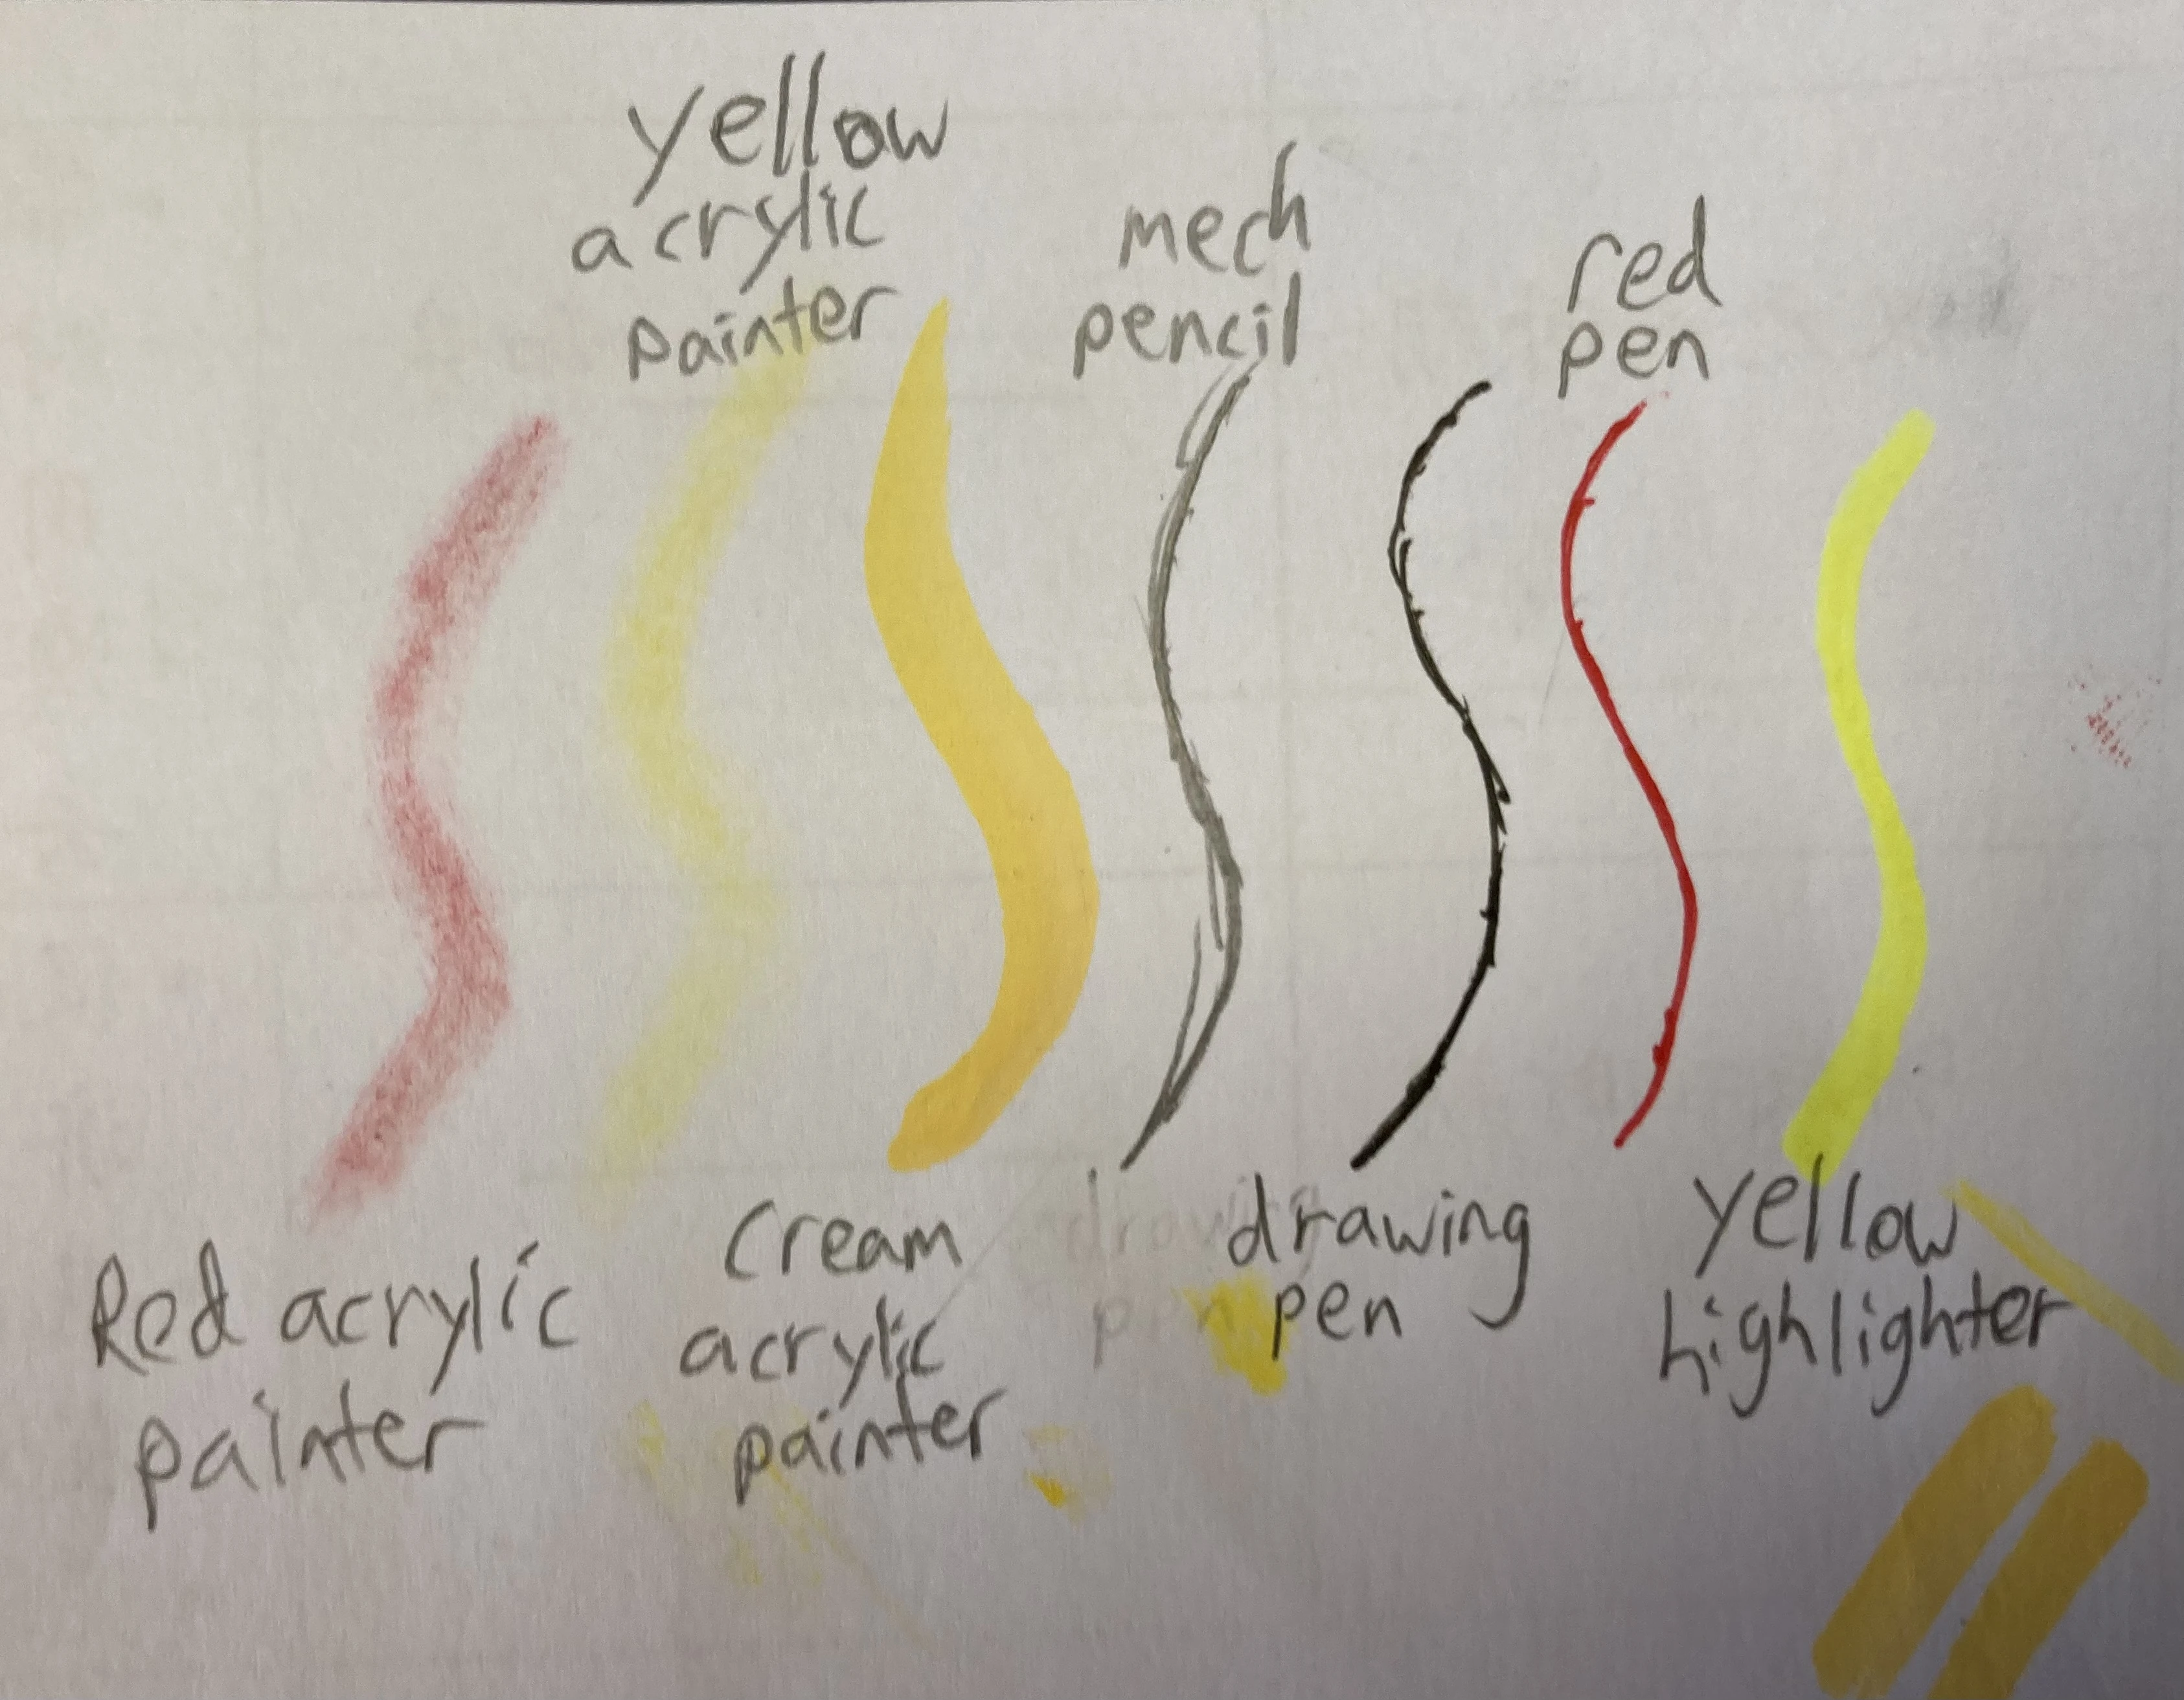 yellow
acrylic
painter
mech
pencil
red
pen
Red acrylic
painter
cream
acrylic
painter
drawing
pen
drawing
pen
yellow
highlighter